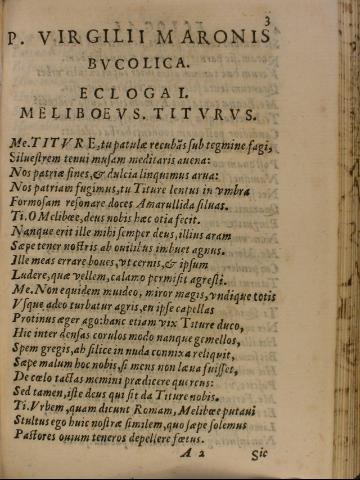 3
P. VIRGILII MARONIS
BVCOLICA.
ECLOGA I.
MELIBOEVS. TITVRVS.
Me. TITVRE, tu patulæ recubãs sub tegmine fagi,
Siluestrem tenui musam meditaris auena:
Nos patriæ fines, & dulcia linquimus arua:
Nos patriam fugimus, tu Titure lentus in vmbra
Formosam resonare doces Amaryllida siluas.
Ti. O Melibœe, deus nobis hæc otia fecit.
Nanque erit ille mihi semper deus, illius aram
Sæpe tener nostris ab ouilibus imbuet agnus.
Ille meas errare boues, vt cernis, & ipsum
Ludere, quæ vellem, calamo permisit agresti.
Me. Non equidem inuideo, miror magis, vndique totis
Vsque adeo turbatur agris, en ipse capellas
Protinus æger ago: hanc etiam vix Titure duco,
Hic inter densas corulos modo nanque gemellos,
Spem gregis, ah silice in nuda connixa reliquit,
Sæpe malum hoc nobis, si mens non læua fuisset,
De cœlo tactas memini prædicere quercus:
Sed tamen, iste deus qui sit da Titure nobis.
Ti. Vrbem, quam dicunt Romam, Melibœe putaui
Stultus ego huic nostræ similem, quo sæpe solemus
Pastores ouium teneros depellere fœtus.
A 2 Sic